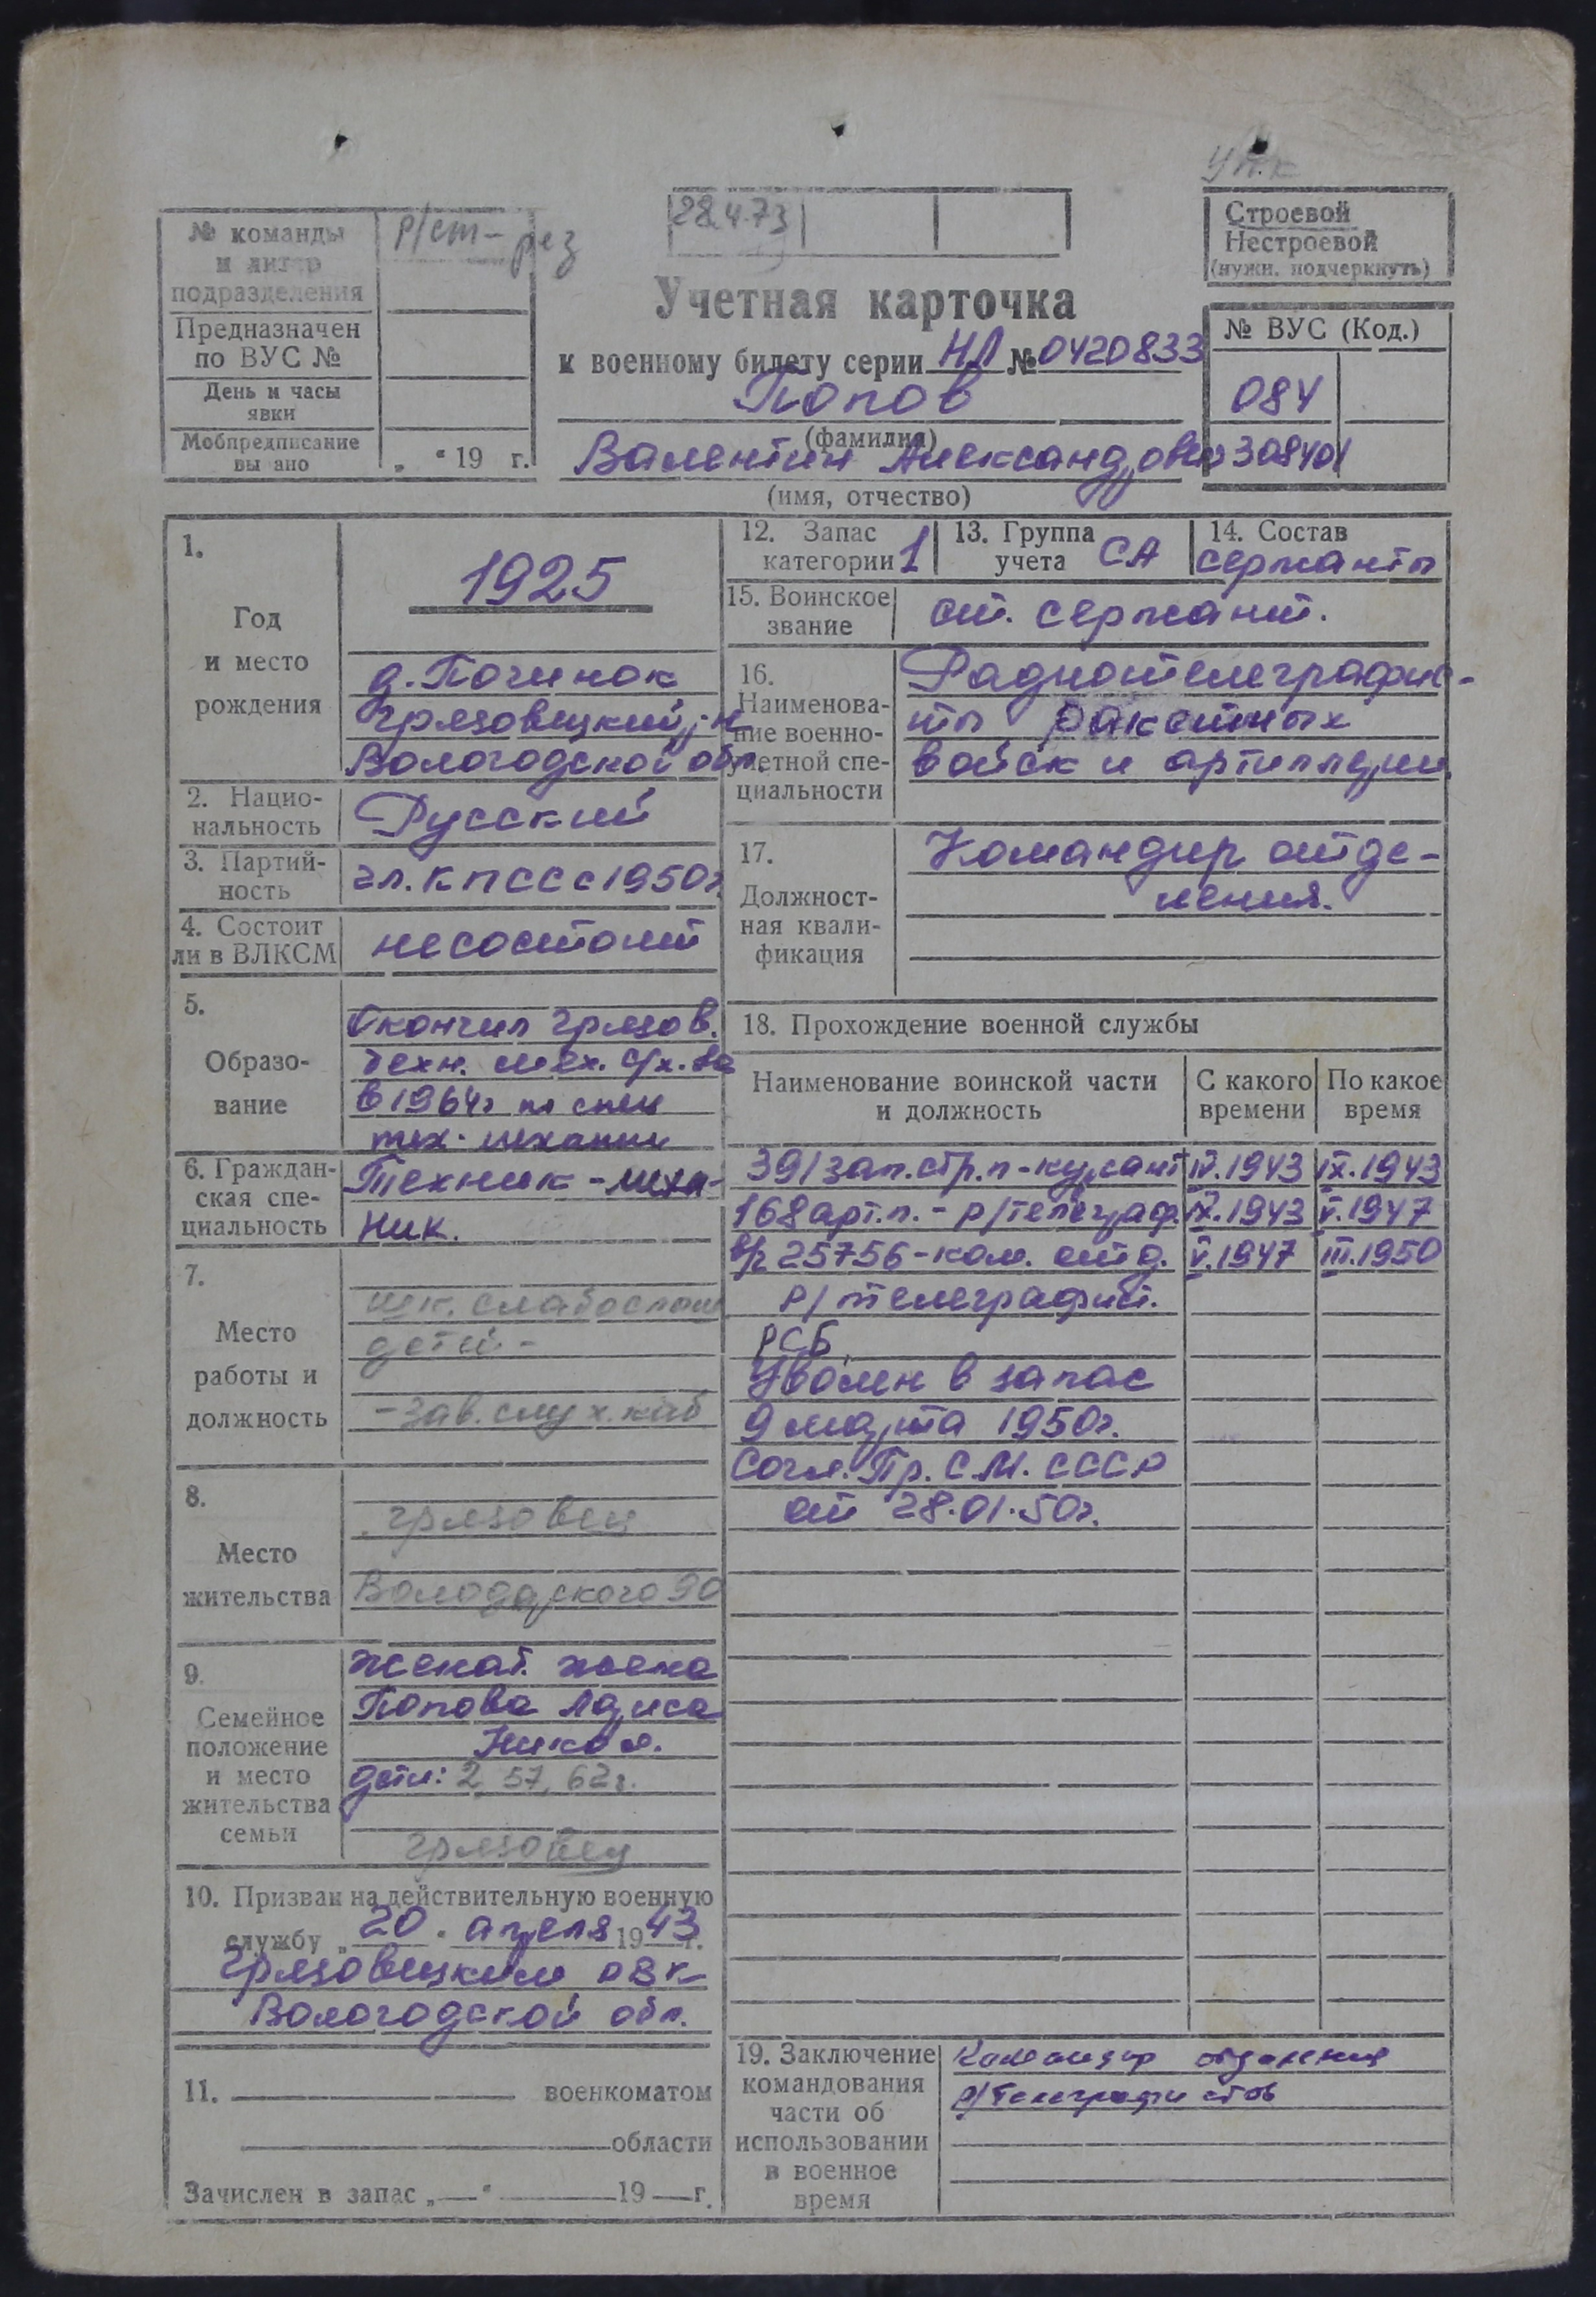 Уч.к
№ команды
и литер
подразделения
Р/ст- рез
Предназначен
по ВУС №
День и часы
явки
Мобпредписание
вы ано
„ “ 19 г.
28.4.73
Учетная карточка
к военному билету серии НЛ № 0420833
Попов
(фамилия)
Валентин Александрович
(имя, отчество)
Строевой
Нестроевой
(нужн. подчеркнуть)
№ ВУС (Код.)
084
308401
1.
Год
и место
рождения
1925
д. Починок
Грязовецкий р-н
Вологодской обл.
2. Нацио-
нальность
Русский
3. Партий-
ность
чл. КПСС с 1950г
4. Состоит
ли в ВЛКСМ
не состоит
5.
Образо-
вание
Окончил Грязов.
техн. мех. с/х. ва
в 1964г по спец
тех. механик
6. Граждан-
ская спе-
циальность
Техник-меха-
ник.
7.
Место
работы и
должность
шк. слабослыш
детей -
- зав. слух. каб
8.
Место
жительства
Грязовец
Володарского 90
9.
Семейное
положение
и место
жительства
семьи
женат. жена
Попова Лариса
Никол.
дети: 2, 57, 62г.
Грязовец
10. Призван на действительную военную
службу „20“ апреля 1943 г.
Грязовецким РВК
Вологодской обл.
11. военкоматом
области
Зачислен в запас „—“ 19 — г.
12. Запас
категории 1
13. Группа
учета СА
14. Состав
сержанты
15. Воинское
звание
ст. сержант.
16.
Наименова-
ние военно-
учетной спе-
циальности
Радиотелеграфис-
ты ракетных
войск и артиллерии
17.
Должност-
ная квали-
фикация
Командир отде-
ления.
18. Прохождение военной службы
Наименование воинской части
и должность
С какого
времени
По какое
время
391 зап. стр. п - курсант IV.1943 IX.1943
168 арт. п. - р/телеграф. IX.1943 V.1947
в/ч 25756 - ком. отд. V.1947 III.1950
р/телеграфист.
РСБ
Уволен в запас
9 марта 1950г.
Согл. Пр. С.М. СССР
от 28.01.50г.
19. Заключение
командования
части об
использовании
в военное
время
Командир отделения
р/телеграфистов